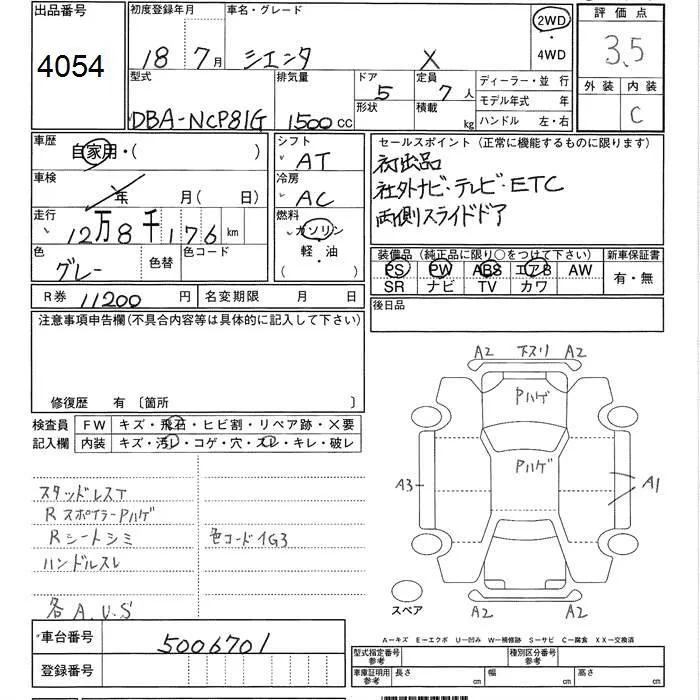 出品番号
4054
初度登録年月 18 7月
車名・グレード シエンタ X
2WD ・ 4WD
評価点
3.5
外装 内装
C
型式 DBA-NCP81G
排気量 1500cc
ドア 5
形状
定員 7人
積載 kg
ディーラー・並行
モデル年式 年
ハンドル 左・右
車歴 自家用・( )
シフト AT
セールスポイント(正常に機能するものに限ります)
初出品
社外ナビ・テレビ・ETC
両側スライドドア
車検 年 月( 日)
冷房 AC
走行 12万8千176km
燃料 ガソリン
軽・油
( )
色 グレー
色替
色コード
装備品(純正品に限り○をつけて下さい)
PS PW ABS エアB AW
SR ナビ TV カワ
新車保証書
有・無
R券 11200円
名変期限 月 日
後日品
注意事項申告欄(不具合内容等は具体的に記入して下さい)
修復歴 有 〔箇所 〕
検査員記入欄
FW キズ・飛石・ヒビ割・リペア跡・X要
内装 キズ・汚レ・コゲ・穴・スレ・キレ・破レ
スタッドレスT
RスポイラーPハゲ
Rシートシミ
色コード1G3
ハンドルスレ
各A.U.S
A2 下スリ A2
Pハゲ
Pハゲ
A3
A1
A2 A2
スペア
A-キズ E-エクボ U-凹み W-補修跡 S-サビ C-腐食 XX-交換済
車台番号 5006701
登録番号
型式指定番号 参考
種別区分番号 参考
車庫証明用 参考
長さ cm
幅 cm
高さ cm